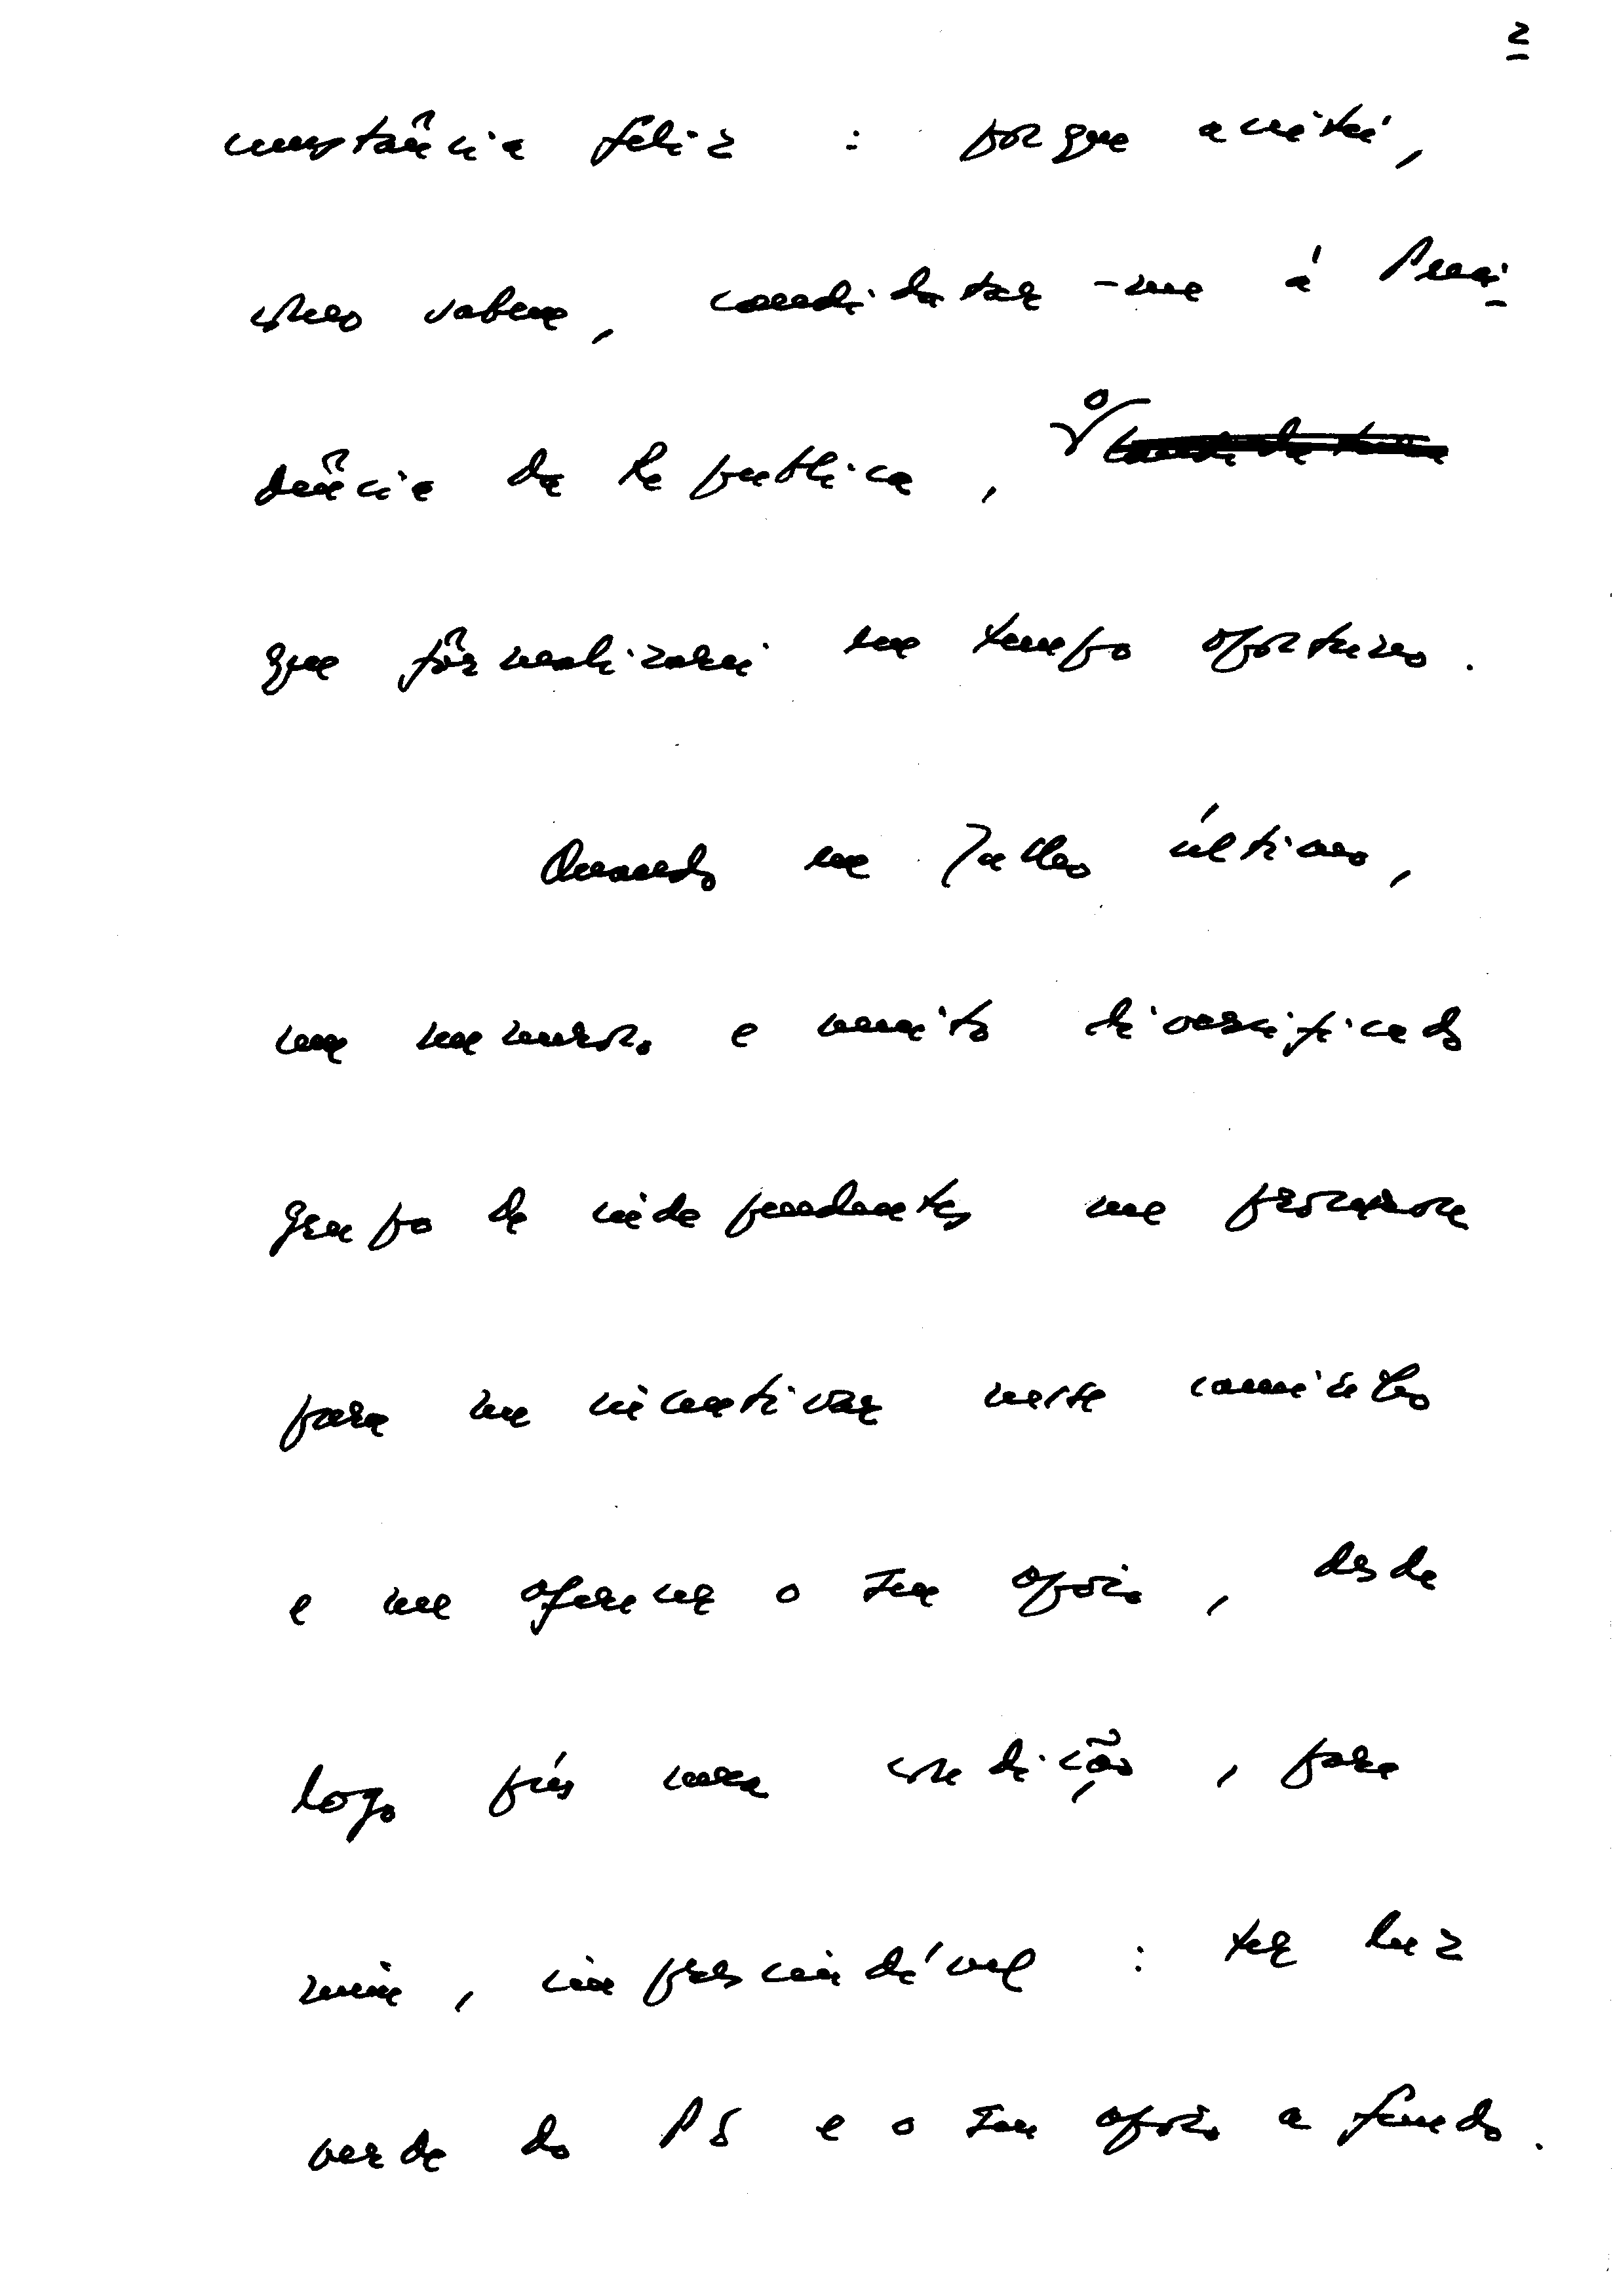 2
cunstância feliz : porque aceitei,
como sabem, candidatar-me à Presi-
dência da Republica, o
que formalizarei em tempo oportuno.
Quando em Julho último,
um numeroso e muito diversificado
grupo de independentes me procurou
para me incentivar neste caminho
e me oferecer o seu apoio, desde
logo pús uma condição, para
mim, imprescindível : ter luz
verde do PS e o seu apoio a fundo.